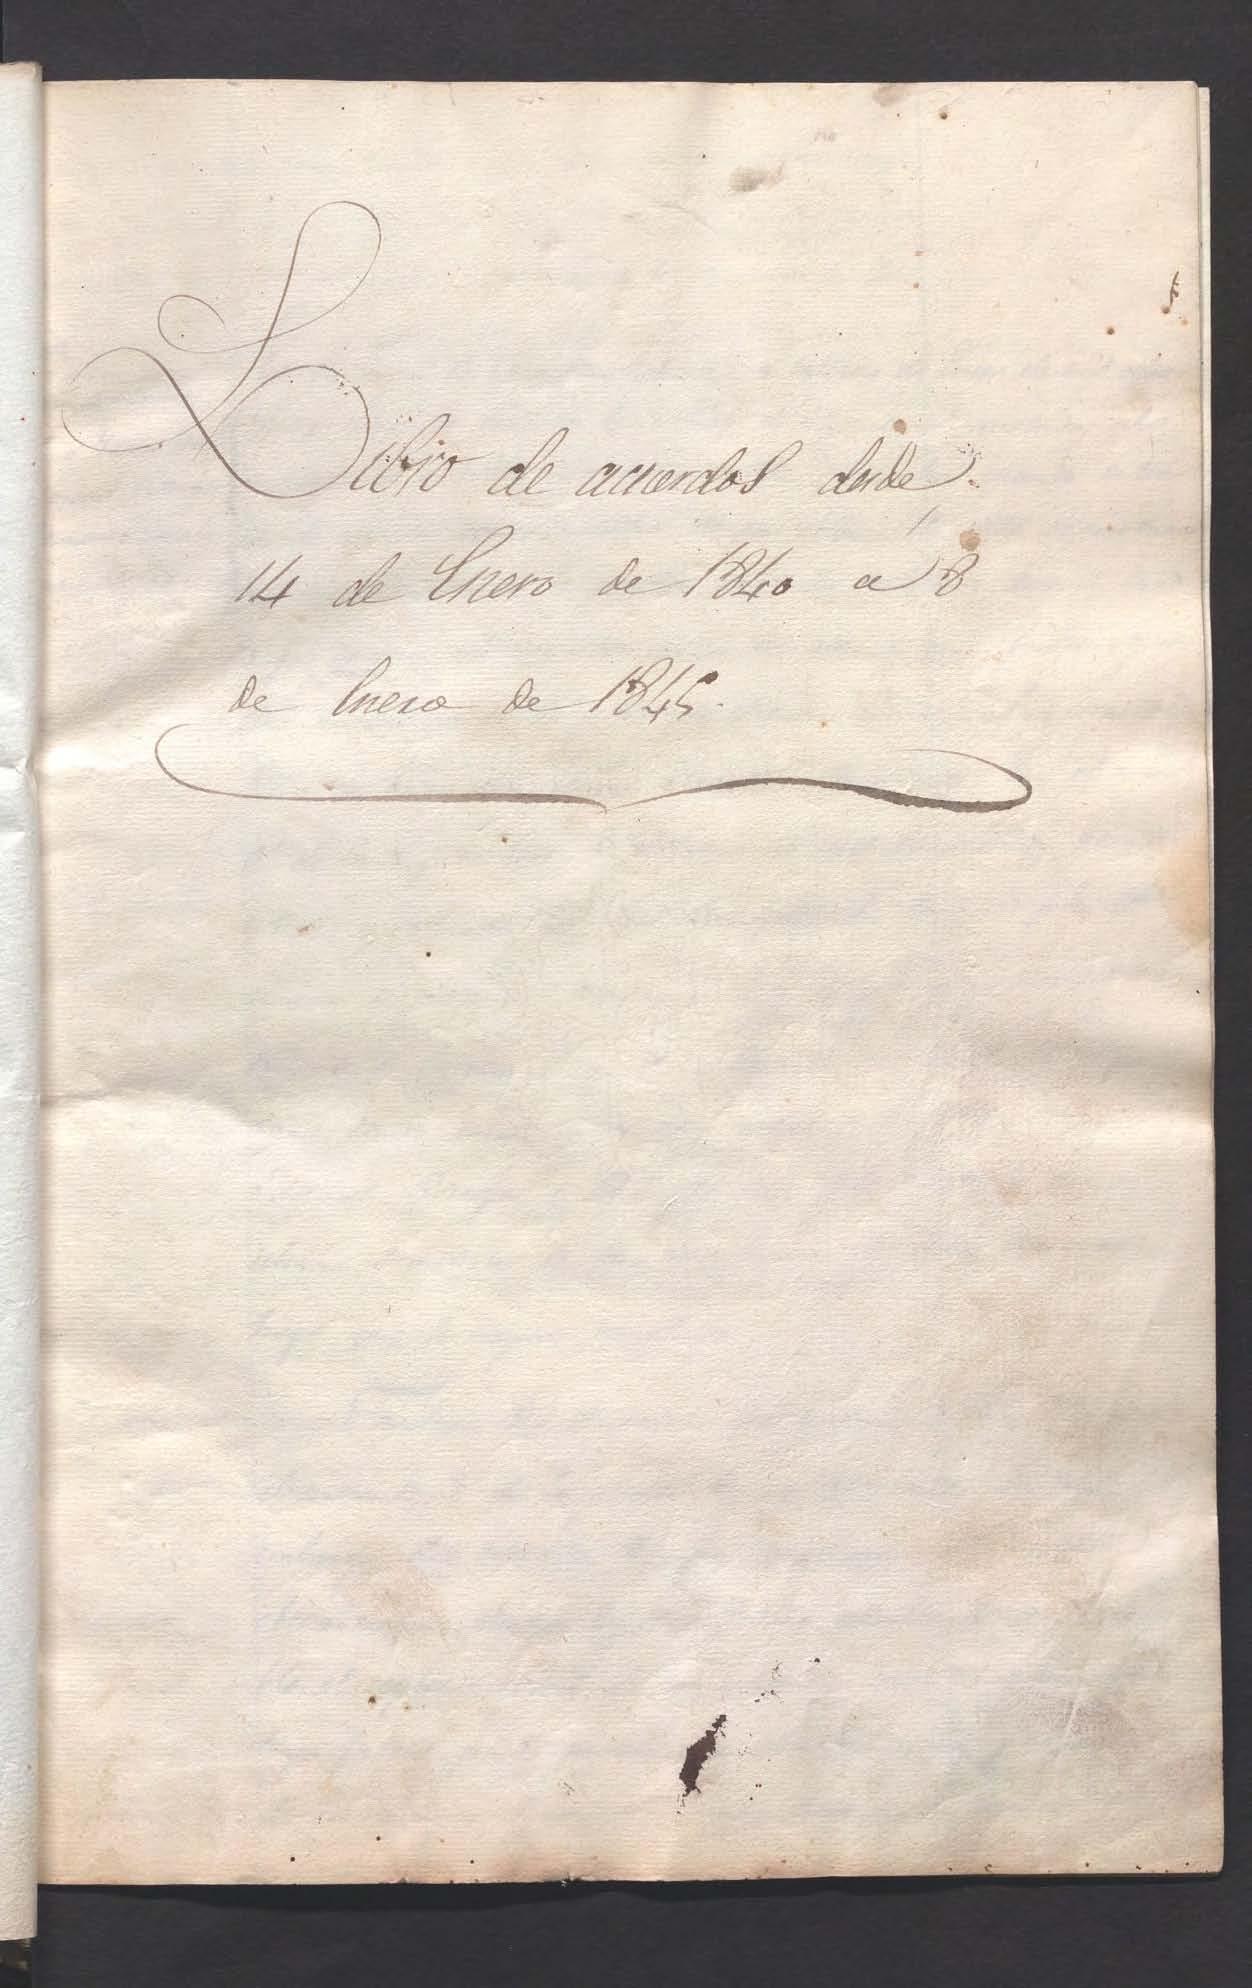 Libro de acuerdos desde
14 de Enero de 1840 a 8
de Enero de 1845.